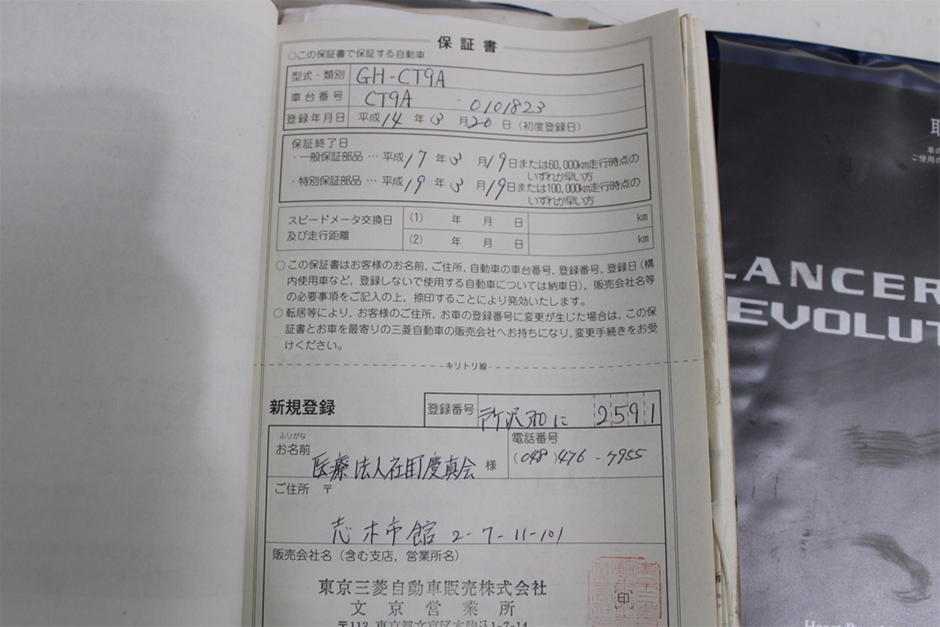 保証書
○この保証書で保証する自動車
型式・類別 GH-CT9A
車台番号 CT9A - 0101823
登録年月日 平成14年3月20日(初度登録日)
保証終了日
・一般保証部品…平成17年3月19日または60,000km走行時点の
いずれか早い方
・特別保証部品…平成19年3月19日または100,000km走行時点の
いずれか早い方
スピードメータ交換日
及び走行距離
(1) 年 月 日 km
(2) 年 月 日 km
○この保証書はお客様のお名前,ご住所,自動車の車台番号,登録番号,登録日(構
内使用車など,登録しないで使用する自動車については納車日),販売会社名等
の必要事項をご記入の上,捺印することにより発効いたします。
○転居等により,お客様のご住所,お車の登録番号に変更が生じた場合は,この保
証書とお車を最寄りの三菱自動車の販売会社へお持ちになり,変更手続きをお受
けください。
キリトリ線
新規登録
登録番号 所沢 に 2591
ふりがな
お名前 医療法人社団慶真会 様
電話番号
(048)476-7955
ご住所 〒
志木市館 2-7-11-101
販売会社名(含む支店,営業所名)
東京三菱自動車販売株式会社
文京営業所
〒113 東京都文京区本駒込1-7-14
印
取
車の
ご使用の
LANCER
EVOLUT